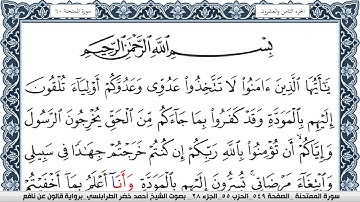 الجزء الثامن والعشرون
سورة الممتحنة ٦٠
بِسْمِ اللَّهِ الرَّحْمَٰنِ الرَّحِيمِ
يَٰأَيُّهَا الَّذِينَ ءَامَنُوا لَا تَتَّخِذُوا عَدُوِّي وَعَدُوَّكُمْ أَوْلِيَاءَ تُلْقُونَ
إِلَيْهِم بِالْمَوَدَّةِ وَقَدْ كَفَرُوا بِمَا جَاءَكُم مِّنَ الْحَقِّ يُخْرِجُونَ الرَّسُولَ
وَإِيَّاكُمْ أَن تُؤْمِنُوا بِاللَّهِ رَبِّكُمْ إِن كُنتُمْ خَرَجْتُمْ جِهَٰدًا فِي سَبِيلِي
وَابْتِغَاءَ مَرْضَاتِي تُسِرُّونَ إِلَيْهِم بِالْمَوَدَّةِ وَأَنَا أَعْلَمُ بِمَا أَخْفَيْتُمْ
سورة الممتحنة الصفحة ٥٤٩ الحزب ٥٥ الجزء ٢٨ بصوت الشيخ أحمد خضر الطرابلسي برواية قالون عن نافع